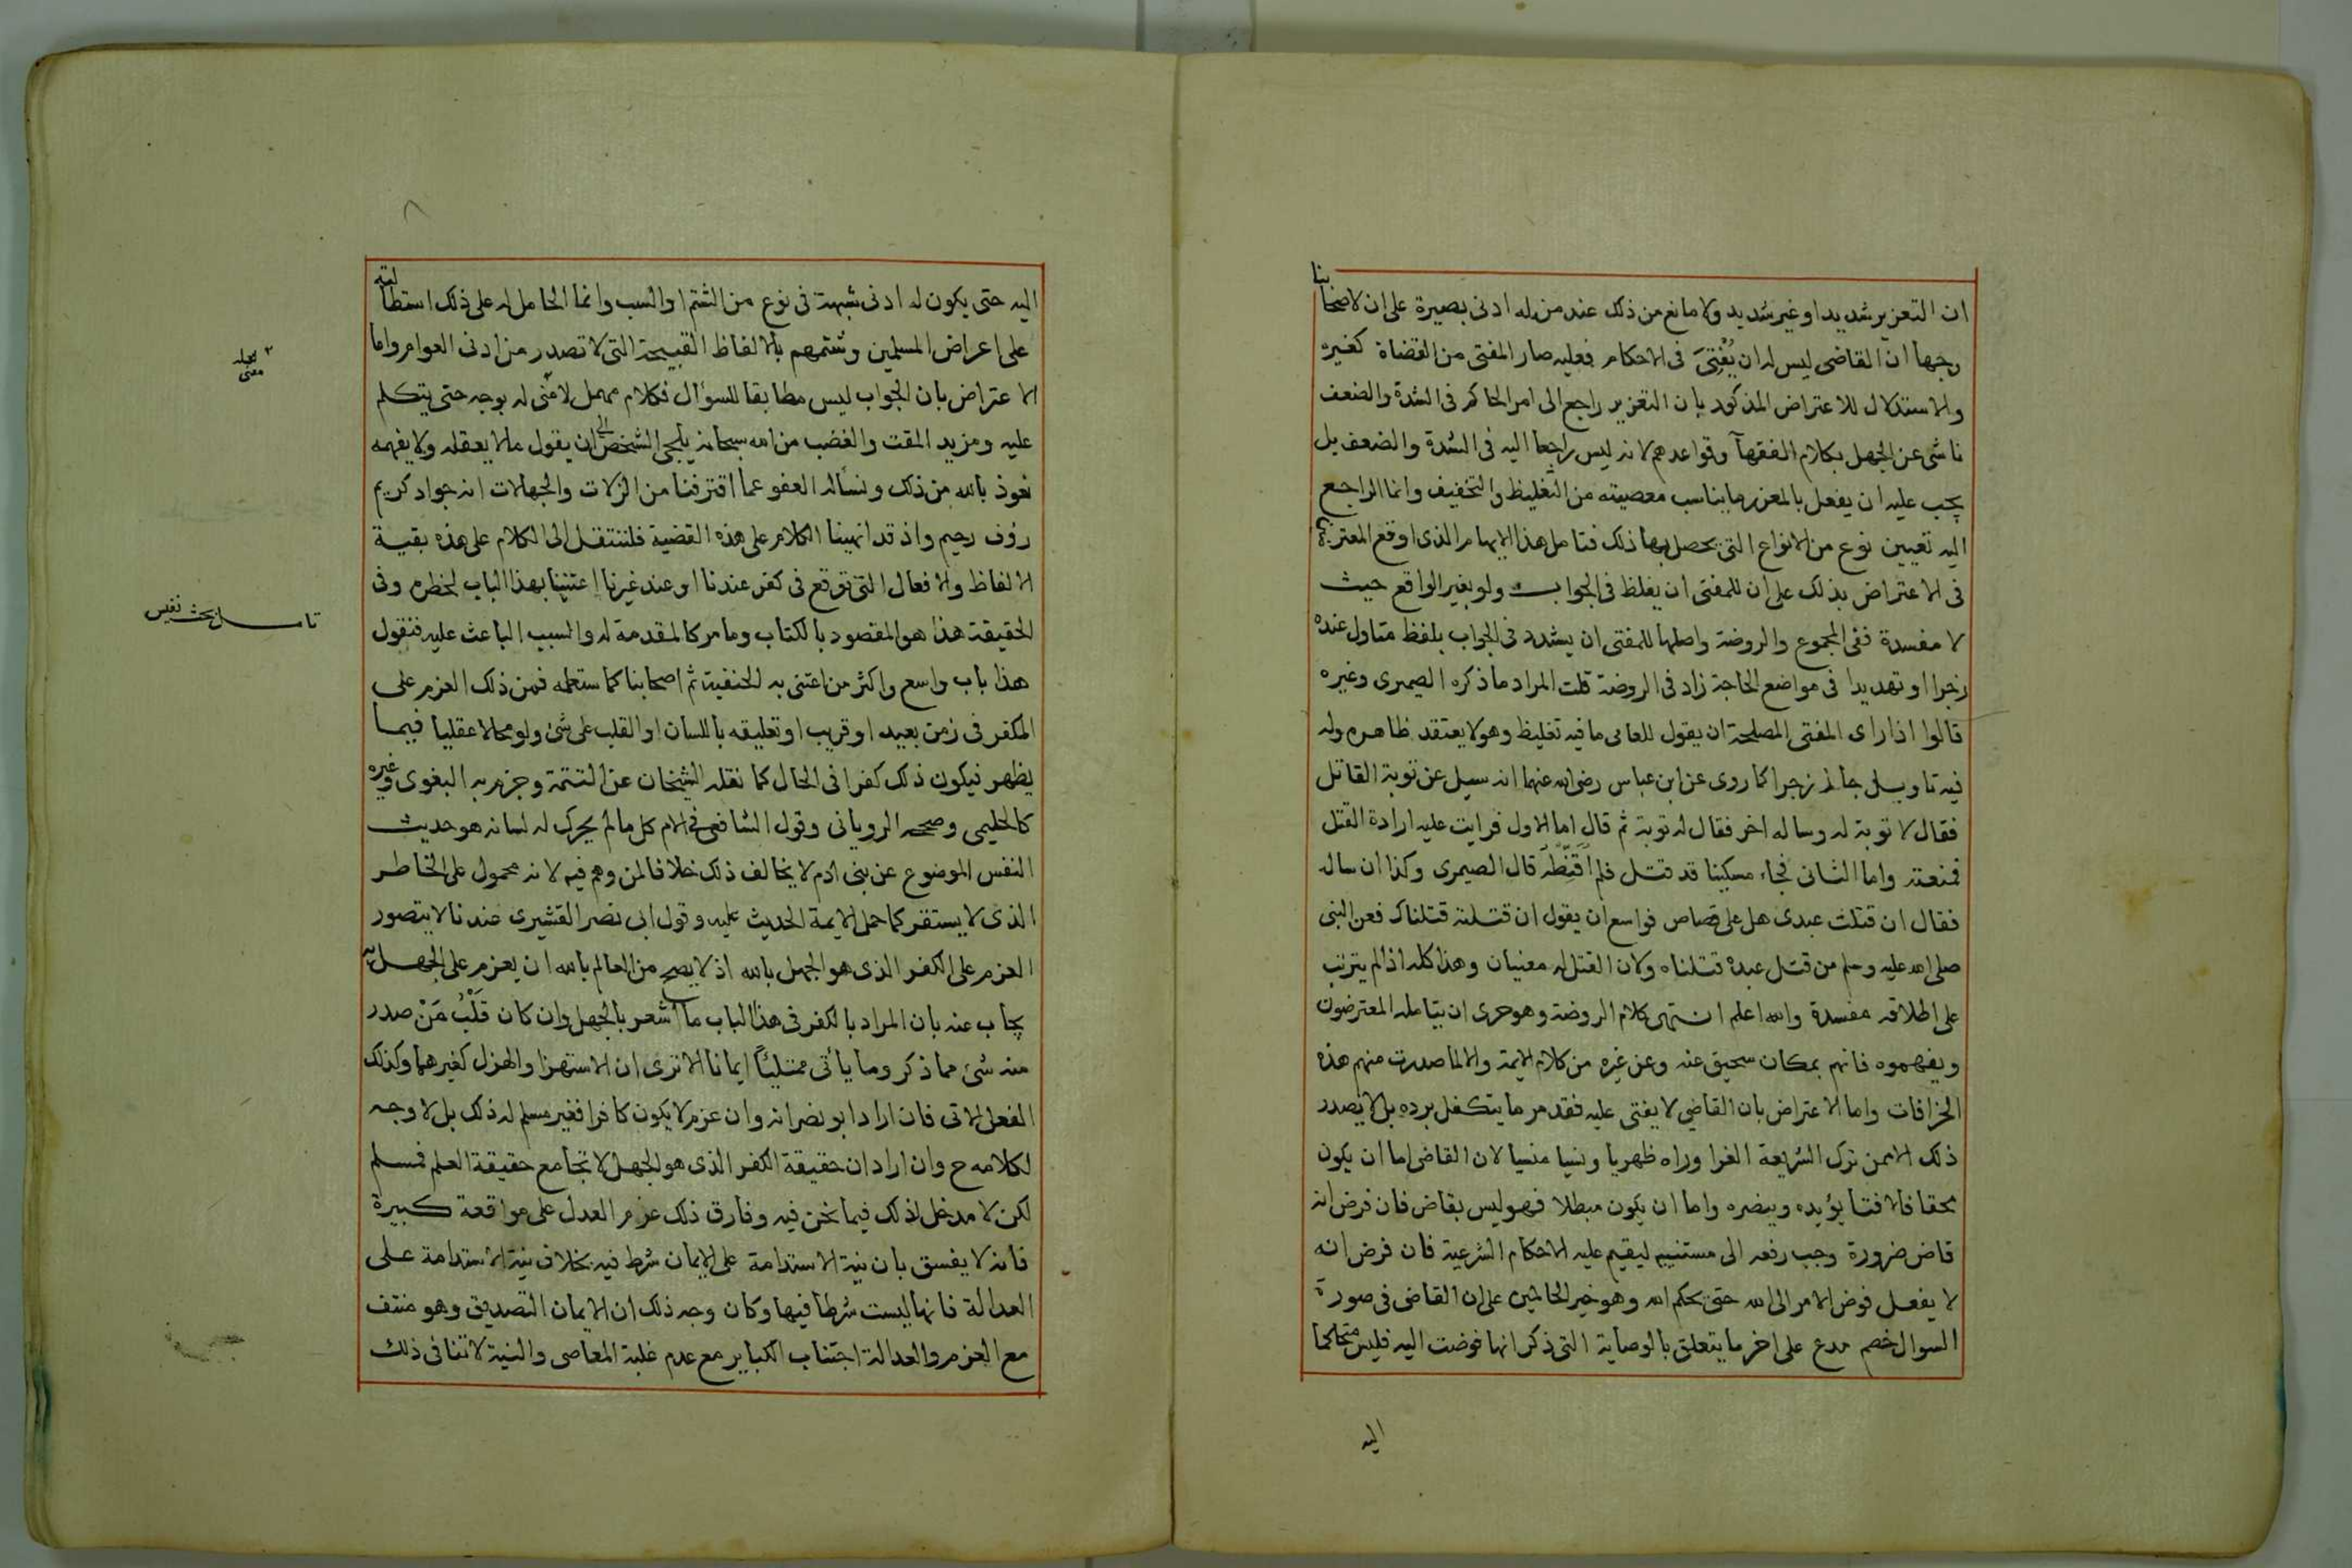 ان التعزير شديدا وغير شديد ولا مانع من ذلك عند من له ادنى بصيرة على ان لاصحابنا
وجها ان القاضى ليس له ان يُفْتِىَ فى الاحكام فعليه صار المفتى من القضاة كغيره
والاستدلال للاعتراض المذكور بان التعزير راجع الى امر الحاكم فى الشدة والضعف
ناشى عن الجهل بكلام الفقهآ وقواعدهم لانه ليس راجعا اليه فى الشدة والضعف بل
يجب عليه ان يفعل بالمعزر ما يناسب معصيته من التغليظ والتخفيف وانما الراجع
اليه تعيين نوع من الانواع التى يحصل بها ذلك فتامل هذا الايهام الذى اوقع المعترضين
فى الاعتراض بذلك على ان للمفتى ان يغلظ فى الجواب ولو بغير الواقع حيث
لا مفسدة ففى المجموع والروضة واصلها للمفتى ان يشدد فى الجواب بلفظ متاول عنده
زجرا او تهديدا فى مواضع الحاجة زاد فى الروضة قلت المراد ما ذكره الصيمرى وغيره
قالوا اذا راى المفتى المصلحة ان يقول للعامى ما فيه تغليظ وهو لا يعتقد ظاهره وله
فيه تاويل جاز زجرا كما روى عن ابن عباس رضى الله عنهما انه سيل عن توبة القاتل
فقال لا توبة له وساله اخر فقال له توبة ثم قال اما الاول فرايت عليه ارادة القتل
فمنعته واما الثانى فجاء مسكينا قد قتل فلم اُقَنِّطْهُ قال الصيمرى وكذا ان ساله
فقال ان قتلت عبدى هل على قصاص فواسع ان يقول ان قتلته قتلناك فعن النبى
صلى الله عليه وسلم من قتل عبده قتلناه ولان القتل له معنيان وهذا كله اذا لم يترتب
على اطلاقه مفسدة والله اعلم انتهى كلام الروضة وهو حرى ان يتامله المعترضون
ويفهموه فانهم بمكان سحيق عنه وعن غيره من كلام الايمة والا لما صدرت منهم هذه
الخرافات واما الاعتراض بان القاضي لا يفتى عليه فقد مر ما يتكفل برده بل لا يصدر
ذلك الا ممن ترك الشريعة الغرا وراه ظهريا ونسيا منسيا لان القاضى اما ان يكون
محقا فالافتا يؤيده وينصره واما ان يكون مبطلا فهو ليس بقاض فان فرض انه
قاض ضرورة وجب رفعه الى مستنيبه ليقيم عليه الاحكام الشرعية فان فرض انه
لا يفعل فوض الامر الى الله حتى يحكم الله وهو خير الحاكمين على ان القاضى فى صورة
السوال خصم مدع على اخر ما يتعلق بالوصاية التى ذكر انها فوضت اليه فليس متحاكما
اليه
اليه حتى يكون له ادنى شبهة فى نوع من الشتم او السب وانما الحامل له على ذلك استطالته
على اعراض المسلمين وشتمهم بالالفاظ القبيحة التى لا تصدر من ادنى العوام واما
الاعتراض بان الجواب ليس مطابقا للسؤال فكلام مهمل لا معنى له بوجه حتى يتكلم
عليه ومزيد المقت والغضب من الله سبحانه يلجى الشخص الى ان يقول ما لا يعقله ولا يفهمه
نعوذ بالله من ذلك ونسأله العفو عما اقترفنا من الزلات والجهالات انه جواد كريم
رؤف رحيم واذ قد انهينا الكلام على هذه القضية فلننتقل الى الكلام على هذه بقية
الالفاظ والافعال التى توقع فى كفر عندنا او عند غيرنا اعتنينا بهذا الباب لخطره وفى
الحقيقة هذا هو المقصود بالكتاب وما مر كالمقدمة له والسبب الباعث عليه فنقول
هذا باب واسع واكثر من اعتنى به الحنفية ثم اصحابنا كما ستعلمه فمن ذلك العزم على
الكفر فى زمن بعيد او قريب او تعليقه باللسان او القلب على شئ ولو محالا عقليا فيما
يظهر فيكون ذلك كفرا فى الحال كما نقله الشيخان عن التتمة وجزم به البغوى وغيره
كالحليمى وصححه الرويانى وقول الشافعى فى الام كل ما لم يحرك له لسانه هو حديث
النفس الموضوع عن بنى ادم لا يخالف ذلك خلافا لمن وهم فيه لانه محمول على الخاطر
الذى لا يستقر كما حمل الايمة الحديث عليه وقول ابى نصر القشيرى عندنا لا يتصور
العزم على الكفر الذى هو الجهل بالله اذ لا يصح من العالم بالله ان يعزم على الجهل به
يجاب عنه بان المراد بالكفر فى هذا الباب ما اشعر بالجهل وان كان قَلْبُ مَنْ صدر
منه شئ مما ذكر وما يأتى ممتليًا ايمانا الا ترى ان الاستهزا والهزل كغيرهما وكذلك
الفعل الاتى فان اراد ابو نصر انه وان عزم لا يكون كافرا فغير مسلم له ذلك بل لا وجه
لكلامه ح وان اراد ان حقيقة الكفر الذى هو الجهل لا تجامع حقيقة العلم فمسلم
لكن لا مدخل لذلك فيما نحن فيه وفارق ذلك عزم العدل على مواقعة كبيرة
فانه لا يفسق بان نية الاستدامة على الايمان شرط فيه بخلاف نية الاستدامة على
العدالة فانها ليست شرطا فيها وكان وجه ذلك ان الايمان التصديق وهو منتف
مع العزم والعدالة اجتناب الكباير مع عدم غلبة المعاصى والنية لا تنافى ذلك
تامل بحث نفيس